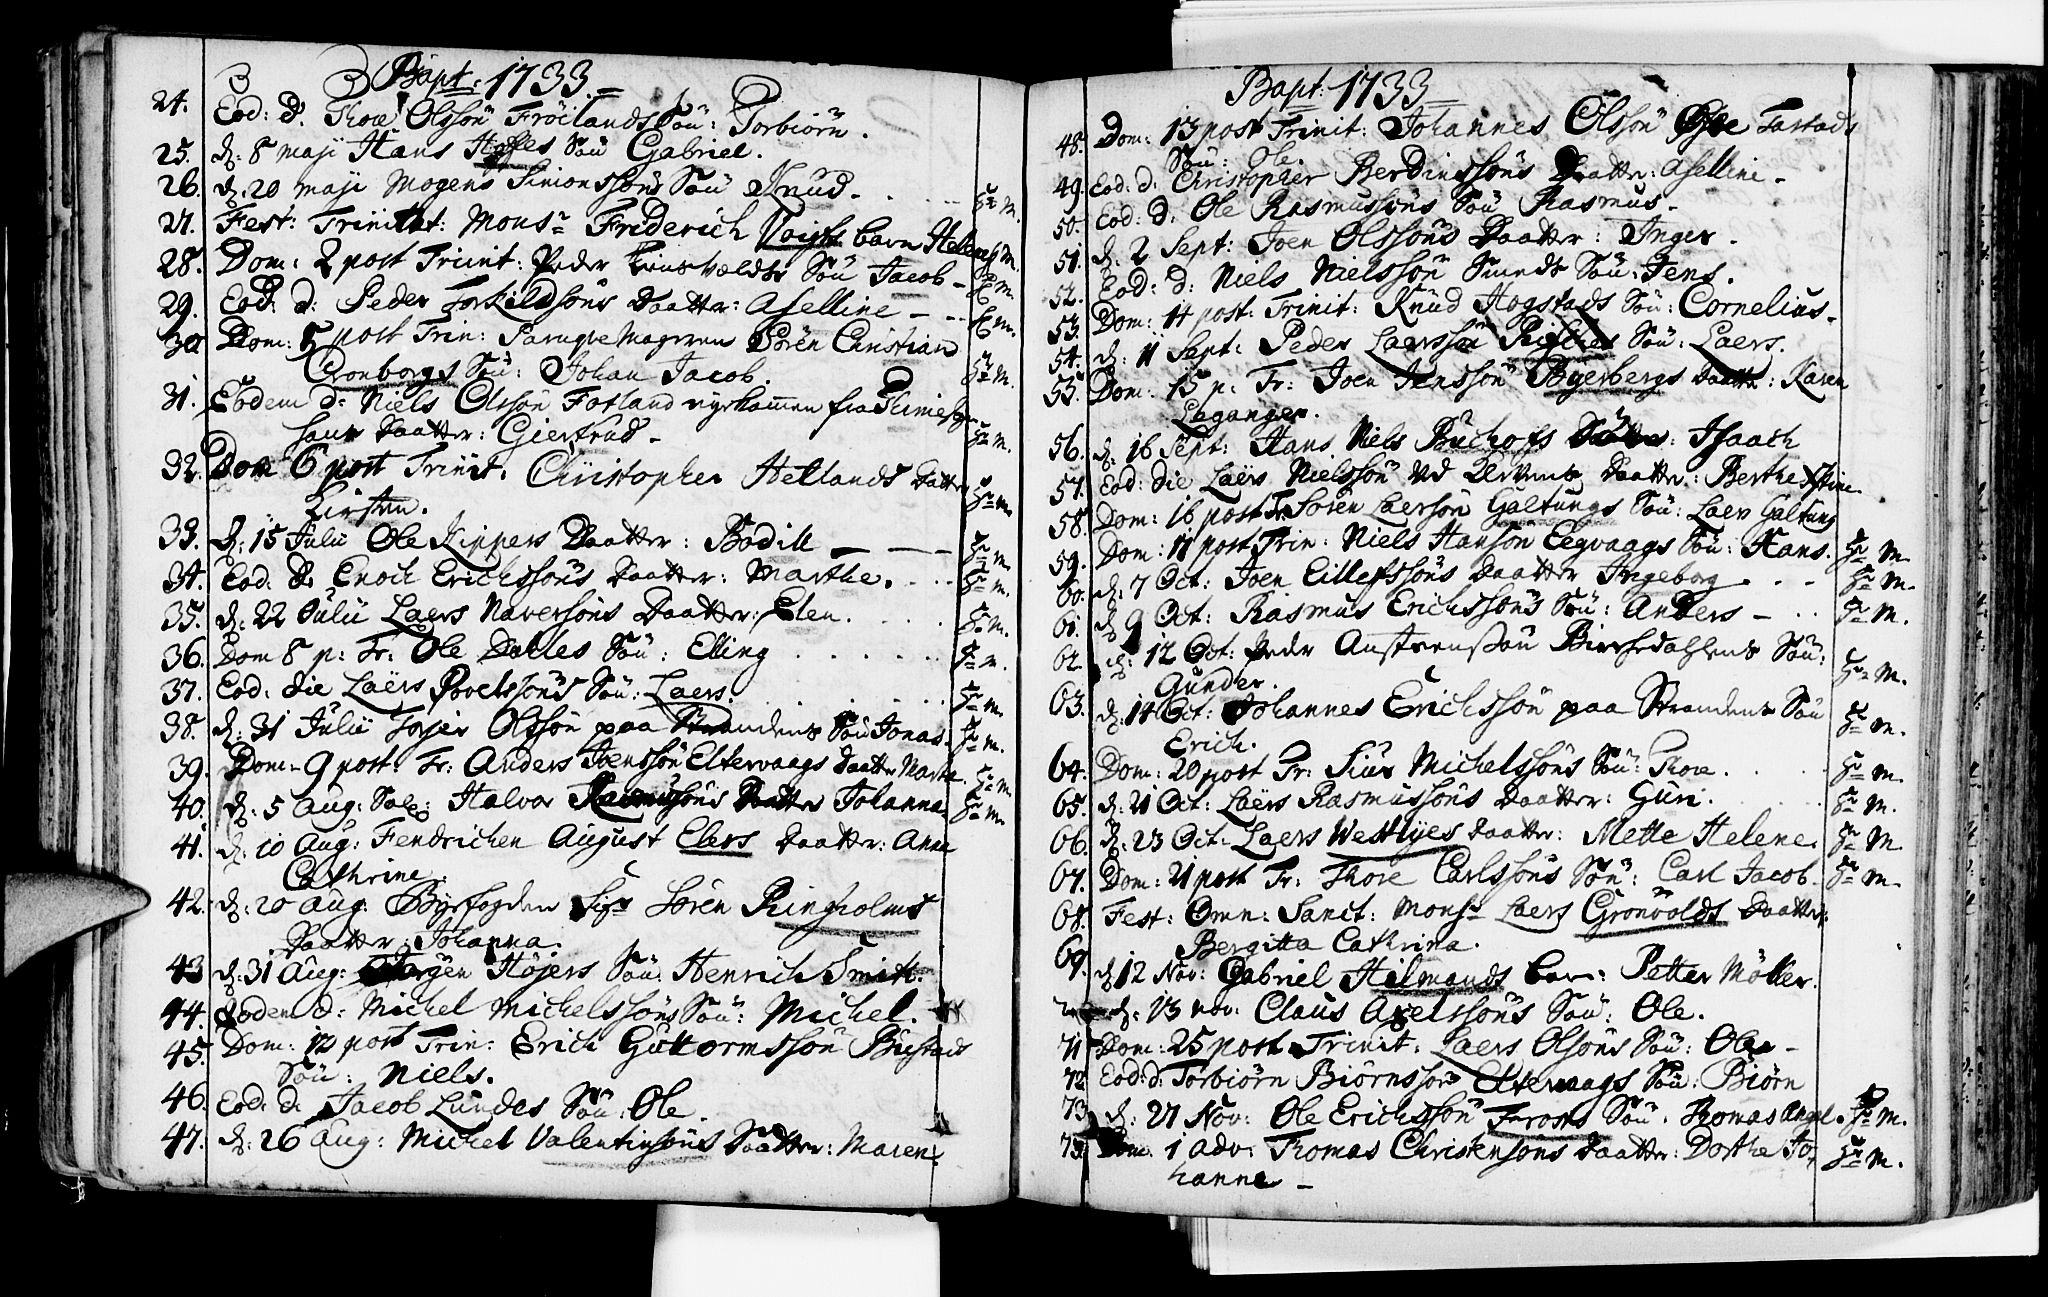 Bapt: 1733.
24. Eod: d. Thore Olssön Fröilands Sön: Torbiörn.
25. d: 8 maji Hans Sön Gabriel.
26. d. 20 maji Mogens Simonssöns Sön Knud. Hr M.
27. Fest: Trinitat: Monsr Friderich Voigts barn Helena Hr M.
28. Dom: 2 post Trinit: Peder Sön Jacob Hr M.
29. Eod: d: Peder Torkildsöns Daatter: Aselline Hr M.
30 Dom: 5 post Trin: Sören Christian
Cronborgs Sön: Johan Jacob. Hr M.
31. Eodem d. Niels Olssön Fotland fra
Daatter: Giertrud. Hr M.
32. Dom 6 post Trinit. Christopher Hellands Datter
Kirsten. Hr M.
33. d. 15 Julii Ole Kippers Daatter: Bodill Hr M.
34. Eod: d. Enoch Erichssöns Daatter: Marthe. Hr M.
35. d: 22 Julii Laers Naversöns Daatter: Elen. Hr M.
36. Dom 8 p: Tr: Ole Sön: Elling Hr M.
37. Eod: die Laers Povelssöns Sön: Laers. Hr M.
38. d: 31 Julii Torjer Olssön paa Strandens Sön Jonas. Hr M.
39. Dom. 9 post. Tr: Anders Joenssön Eltervaags Daatter Marte. Hr M.
40. d: 5 Aug: Halvor Rasmussöns Daatter Johanna Hr M.
41. d: 10 Aug: Fendrichen August Elers Daatter: Anne
Cathrine.
42. d: 20 Aug: Byefogden Sigr Sören Ringholms
Daatter: Johanna.
43 d: 31 Aug: Jörgen Höjers Sön: Henrich Smith.
44. Eodem d: Michel Michelssöns Sön: Michel.
45. Dom: 12 post Trin: Erich Guttormssön Buestads
Sön: Niels.
46. Eod: d. Jacob Lundes Sön: Ole.
47. d: 26 Aug: Michel Valentinsöns Daatter: Maren.
Bapt: 1733
48. Dom: 13 post Trinit: Johannes Olssön Tastads
Sön: Ole.
49. Eod: d: Christopher Berdinssöns Daatter: Aselline.
50. Eod: d: Ole Rasmussöns Sön Rasmus.
51. d: 2 Sept: Joen Olssöns Daatter: Inger.
52. Eod: d: Niels Nielssön Sunds Sön: Jens.
53. Dom: 14 post: Trinit: Knud Hogstads Sön: Cornelius.
54. d: 11 Sept: Peder Laerssön Sön: Laers.
55. Dom: 15 p: Tr: Joen Jenssön Byerbergs Daatter: Karen
Leganger.
56. d: 16 Sept: Hans Niels Buchofs Sön: Isaach
57. Eod: die Laers Nielssön ved Daatter: Berthe Stine.
58. Dom: 16 post Tr. Sören Laersön Galtungs Sön: Laers Galtung
59. Dom: 17 post Trin: Niels Hansön Eegvaags Sön: Hans. Hr M.
60. d: 7 Oct: Joen Eillefssöns Daatter Ingeborg Hr M.
61. d 9 Oct: Rasmus Erichssöns Sön: Anders Hr M.
62 d: 12 Oct: Peder Austeenssön Birchedahlens Sön:
Gunder. Hr M.
63. d: 14 Oct: Johannes Erichssön paa Strandens Sön
Erich. Hr M.
64. Dom: 20 post Tr: Siur Michelssöns Sön: Thore. Hr M.
65. d: 21 Oct: Laers Rasmussöns Daatter: Guri. Hr M.
66. d: 23 Oct: Laers Westlyes Daatter: Mette Helene. Hr M.
67. Dom: 21 post Tr: Thore Carlssöns Sön: Carl Jacob Hr M.
68. Fest: Omn: Sanct: Monsr Laers Grönvolds Daatter:
Bergitta Cathrina.
69. d 12 Nov: Gabriel Hilmands barn: Petter Möller.
d: 13 nov: Claus Axelssöns Sön: Ole.
71 Dom: 25 post Trinit: Laers Olsöns Sön: Ole
72. Eod: d: Torbiörn Biörnssön Eltervaags Sön: Biörn
73 d: 27 Nov: Ole Erichssön Frosts Sön: Thomas Angel. Hr M.
73. Dom: 1 Adv: Thomas Christensöns Daatter: Dorthe Jo-
hanne Hr M.